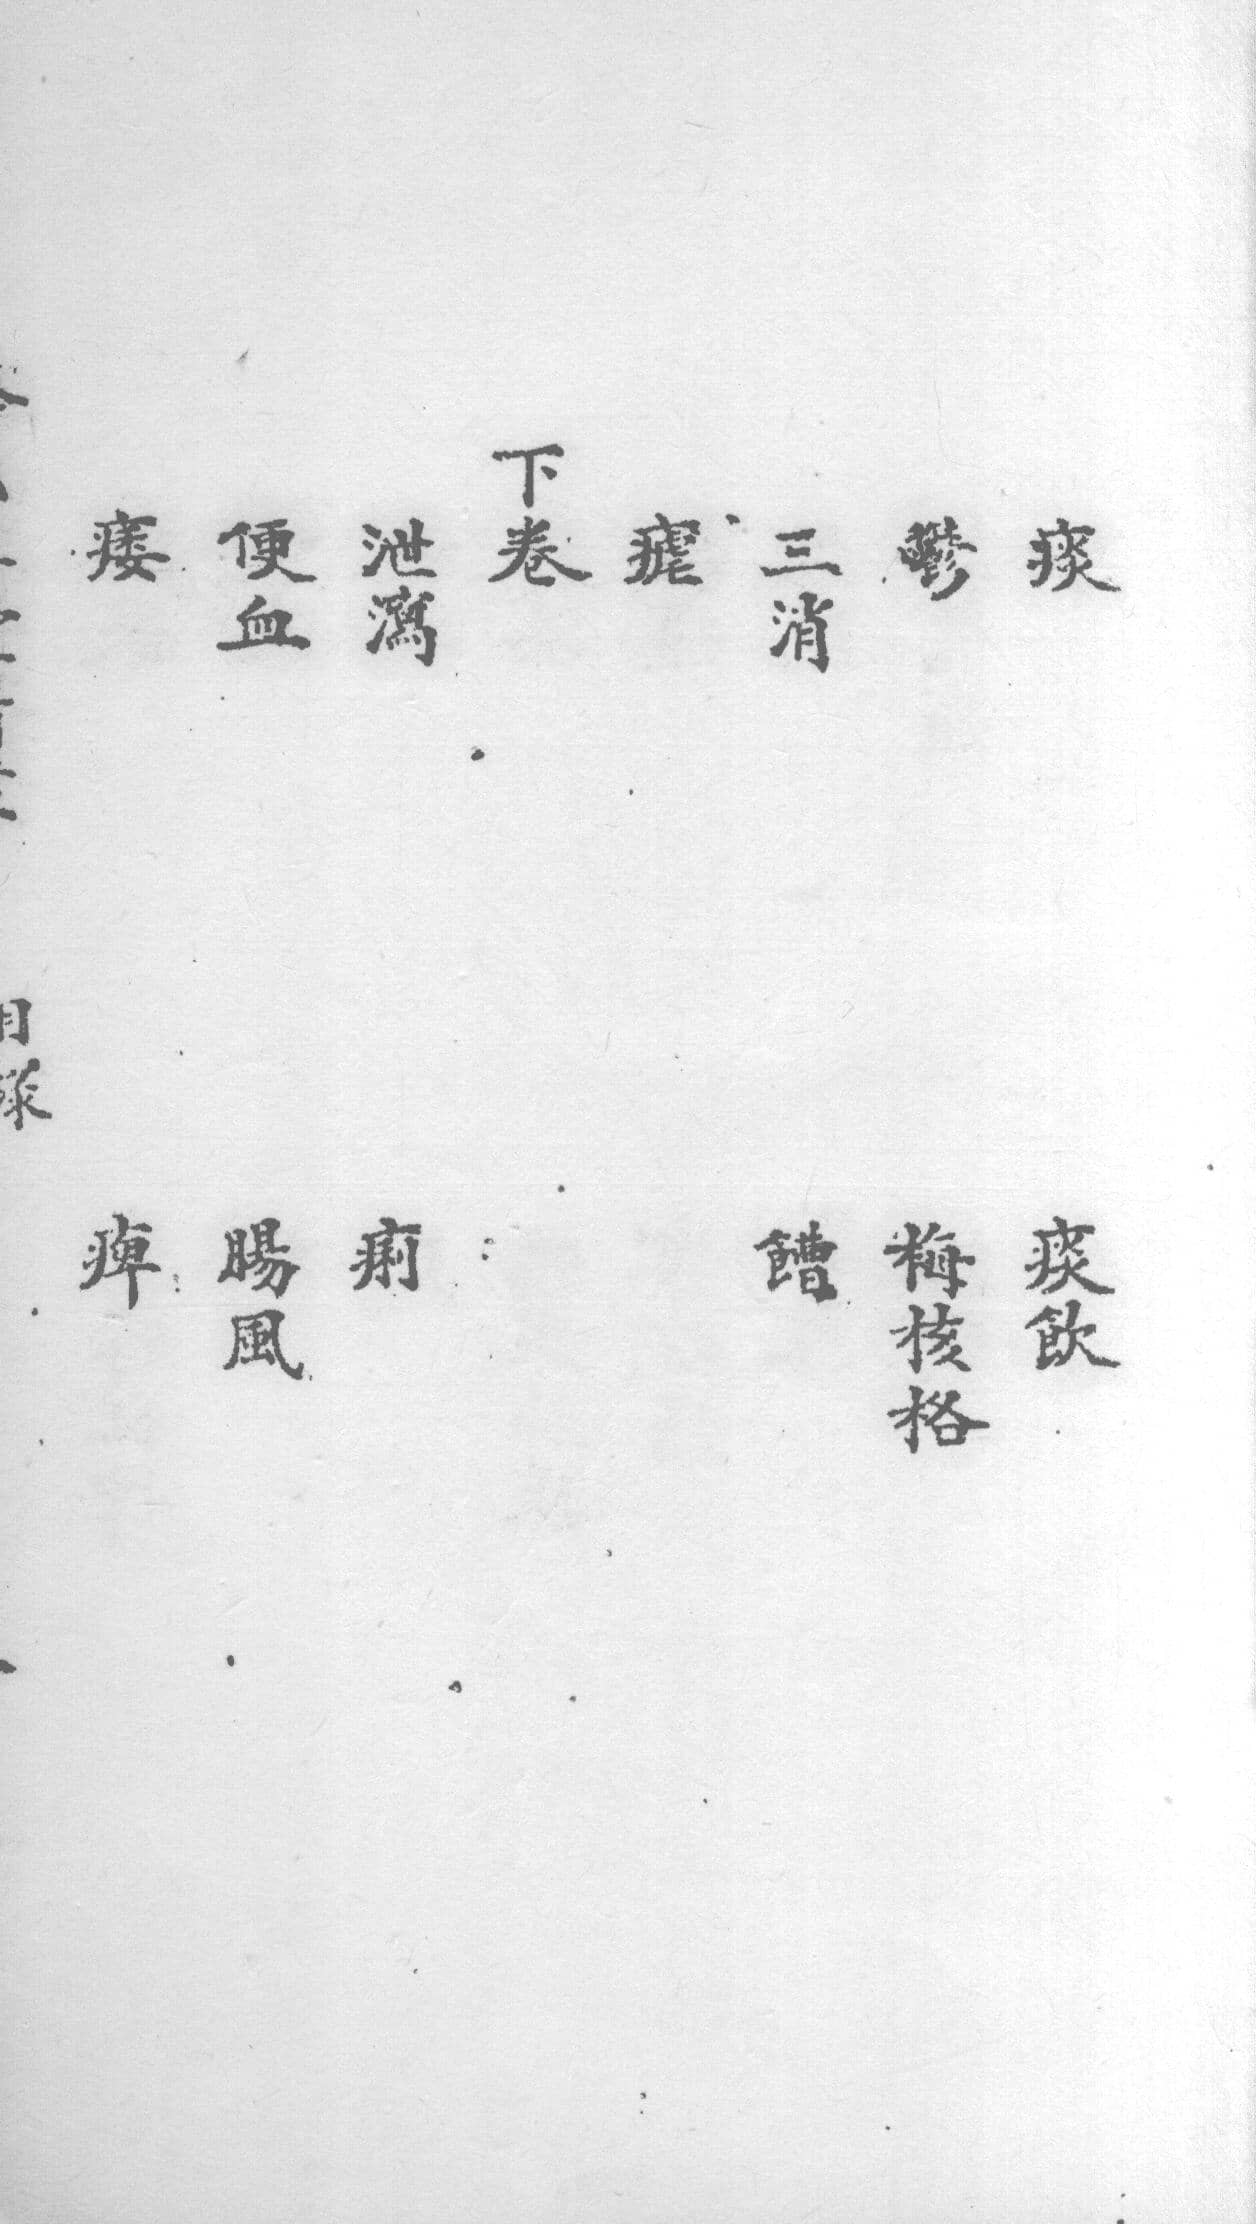 痰　痰飲
鬱　梅核格
三消　饎
瘧
下卷
泄瀉　痢
便血　腸風
痿　痺
目錄